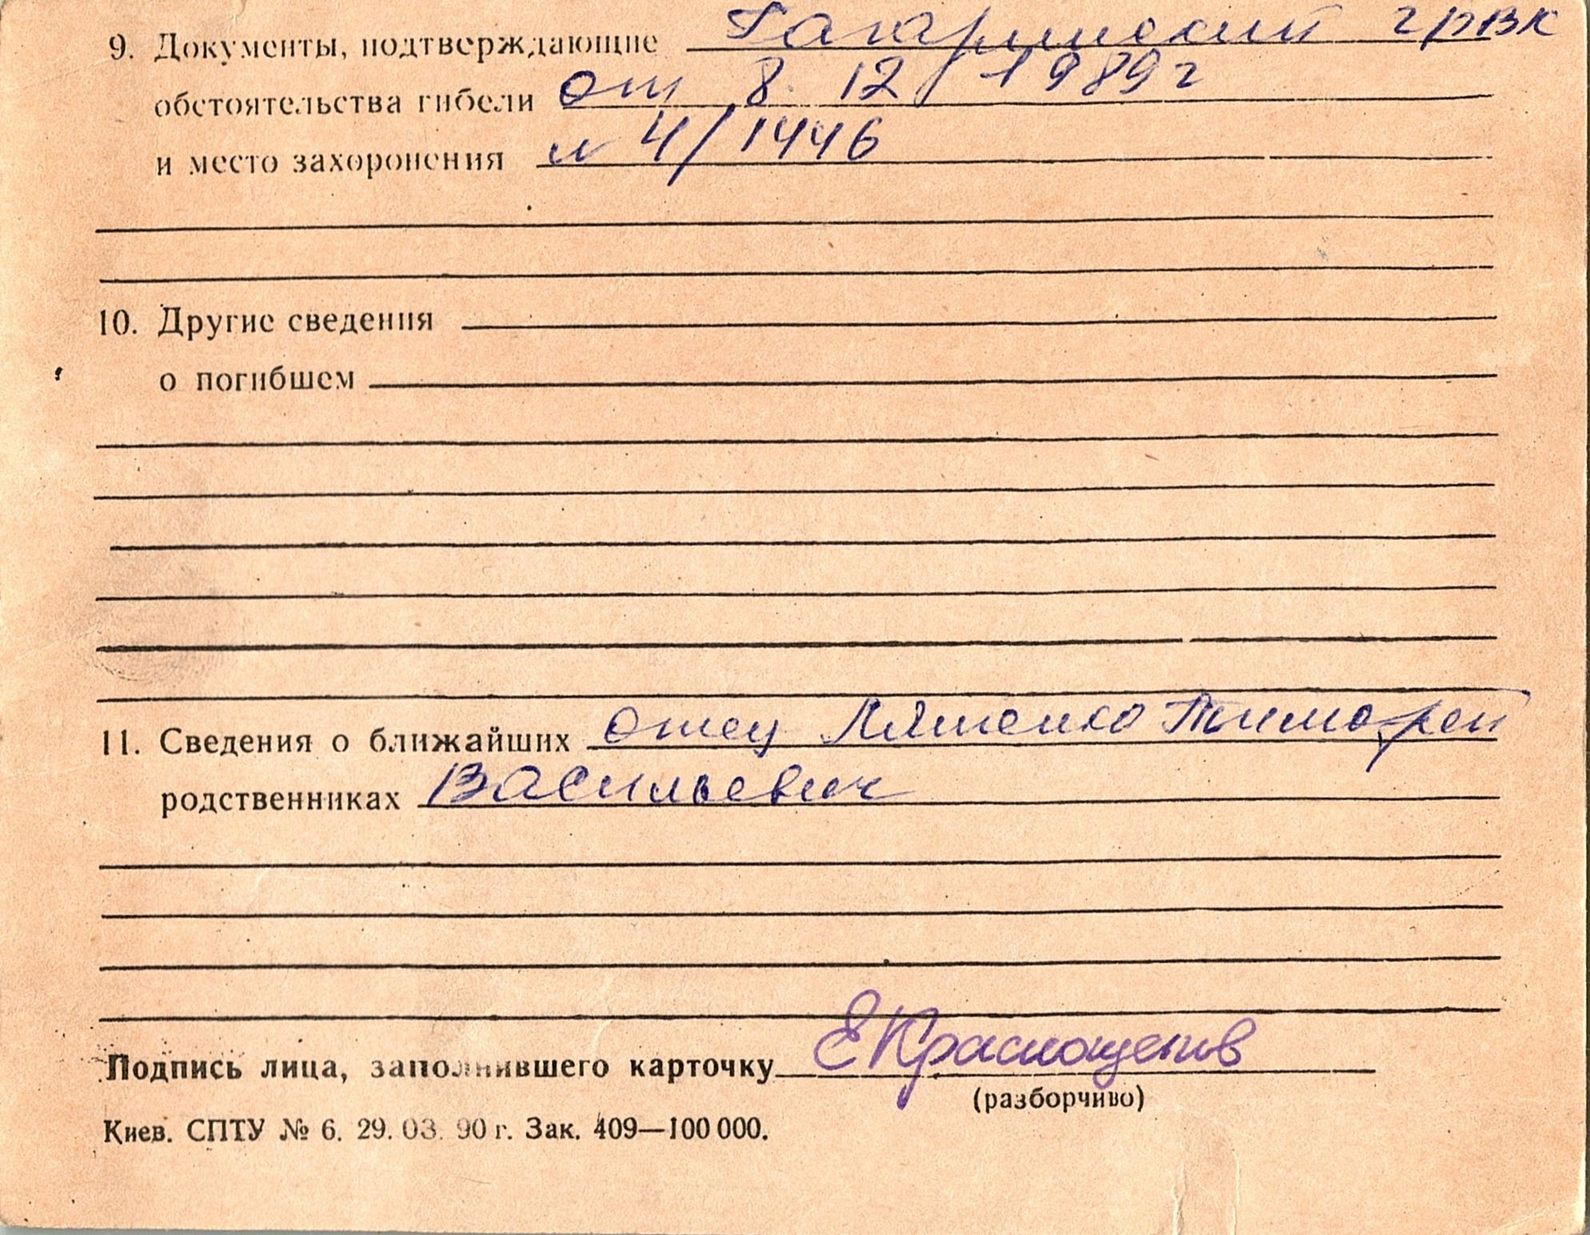 9. Документы, подтверждающие Гагаринский ГРВК
обстоятельства гибели от 8. 12 1989г
и место захоронения № 4/1446
10. Другие сведения
о погибшем
11. Сведения о ближайших отец Ляшенко Тимофей
родственниках Васильевич
Подпись лица, заполнившего карточку ЕКраснощеков
(разборчиво)
Киев. СПТУ № 6. 29. 03. 90 г. Зак. 409—100 000.